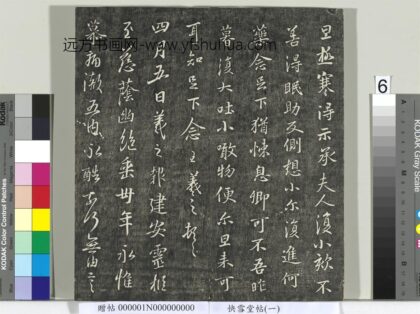 远方书画网-www.yfshuhua.com
旦極寒得示承夫人復小欬不
善得眠助反側想小尔復進何
藥念足下猶悚息卿可不吾昨
暮復大吐小噉物便尔旦来可
耳知足下念王羲之頓首
四月五日羲之報建安靈柩
至慈蔭幽絶垂卅年永惟
慕痛徹五内永酷奈何無由言
6
Kodak Color Control Patches
KODAK Gray Scale
赠帖 000001N000000000 快雪堂帖(一)